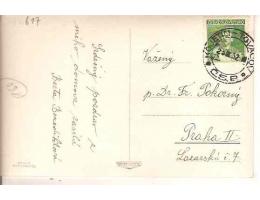 617
Srdečný pozdrav z
mého domova zasílá
Berta Benediktová
Vážený
p. Dr. Fr. Pokorný
Praha II
Lazarská i. 7